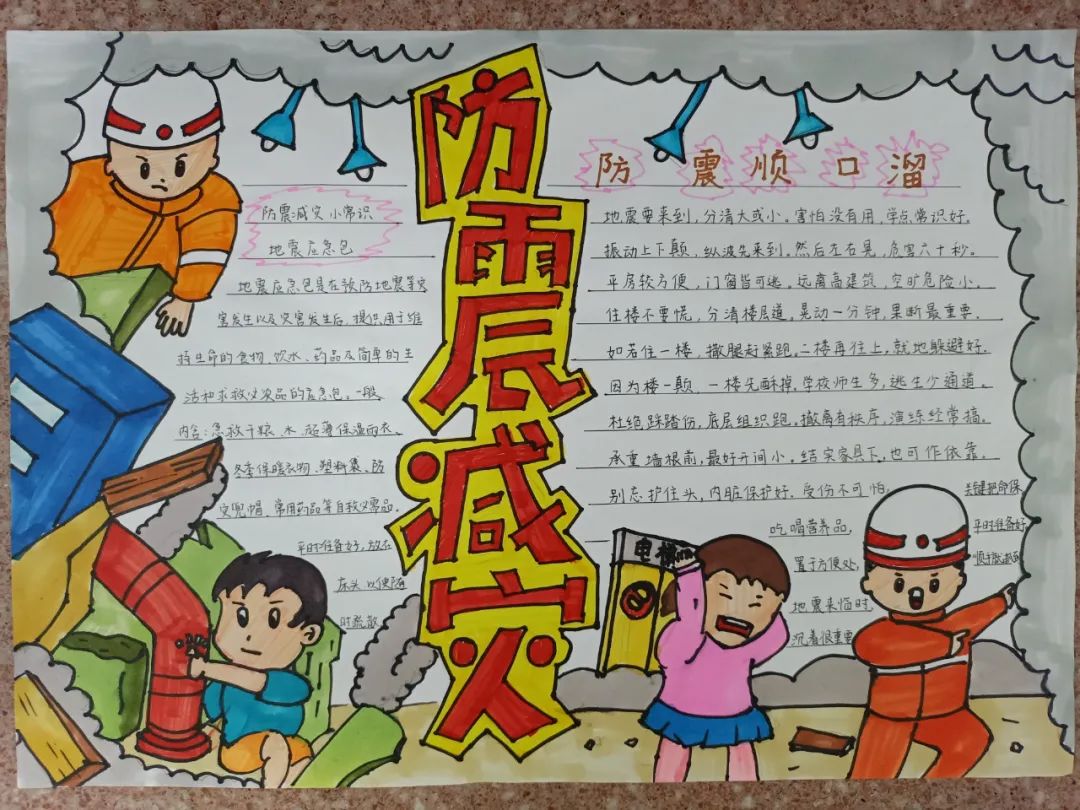 防震减灾
防震减灾小常识
地震应急包
地震应急包是在预防地震等灾
害发生以及灾害发生后，提供用于维
持生命的食物、饮水、药品及简单的生
活和求救必须品的应急包。一般
内含：急救干粮、水、超薄保温雨衣、
冬季保暖衣物、塑料裹、防
灾兜帽、常用药品等自救必需品。
平时准备好，放在
床头以便随
时疏散
防震顺口溜
地震要来到，分清大或小。害怕没有用，学点常识好。
振动上下颠，纵波先来到。然后左右晃，危害六十秒。
平房较方便，门窗皆可逃。远离高建筑，空旷危险小。
住楼不要慌，分清楼层道，晃动一分钟，果断最重要。
如若住一楼，撒腿赶紧跑。二楼再往上，就地躲避好。
因为楼一颠，一楼先酥掉。学校师生多，逃生少通道。
杜绝踩踏伤，底层组织跑。撤离有秩序，演练经常搞。
承重墙根前，最好开间小。结实家具下，也可作依靠。
别忘护住头，内脏保护好。受伤不可怕，关键把命保
吃喝营养品，平时准备好
置于方便处，
地震来临时，
沉着很重要
电梯